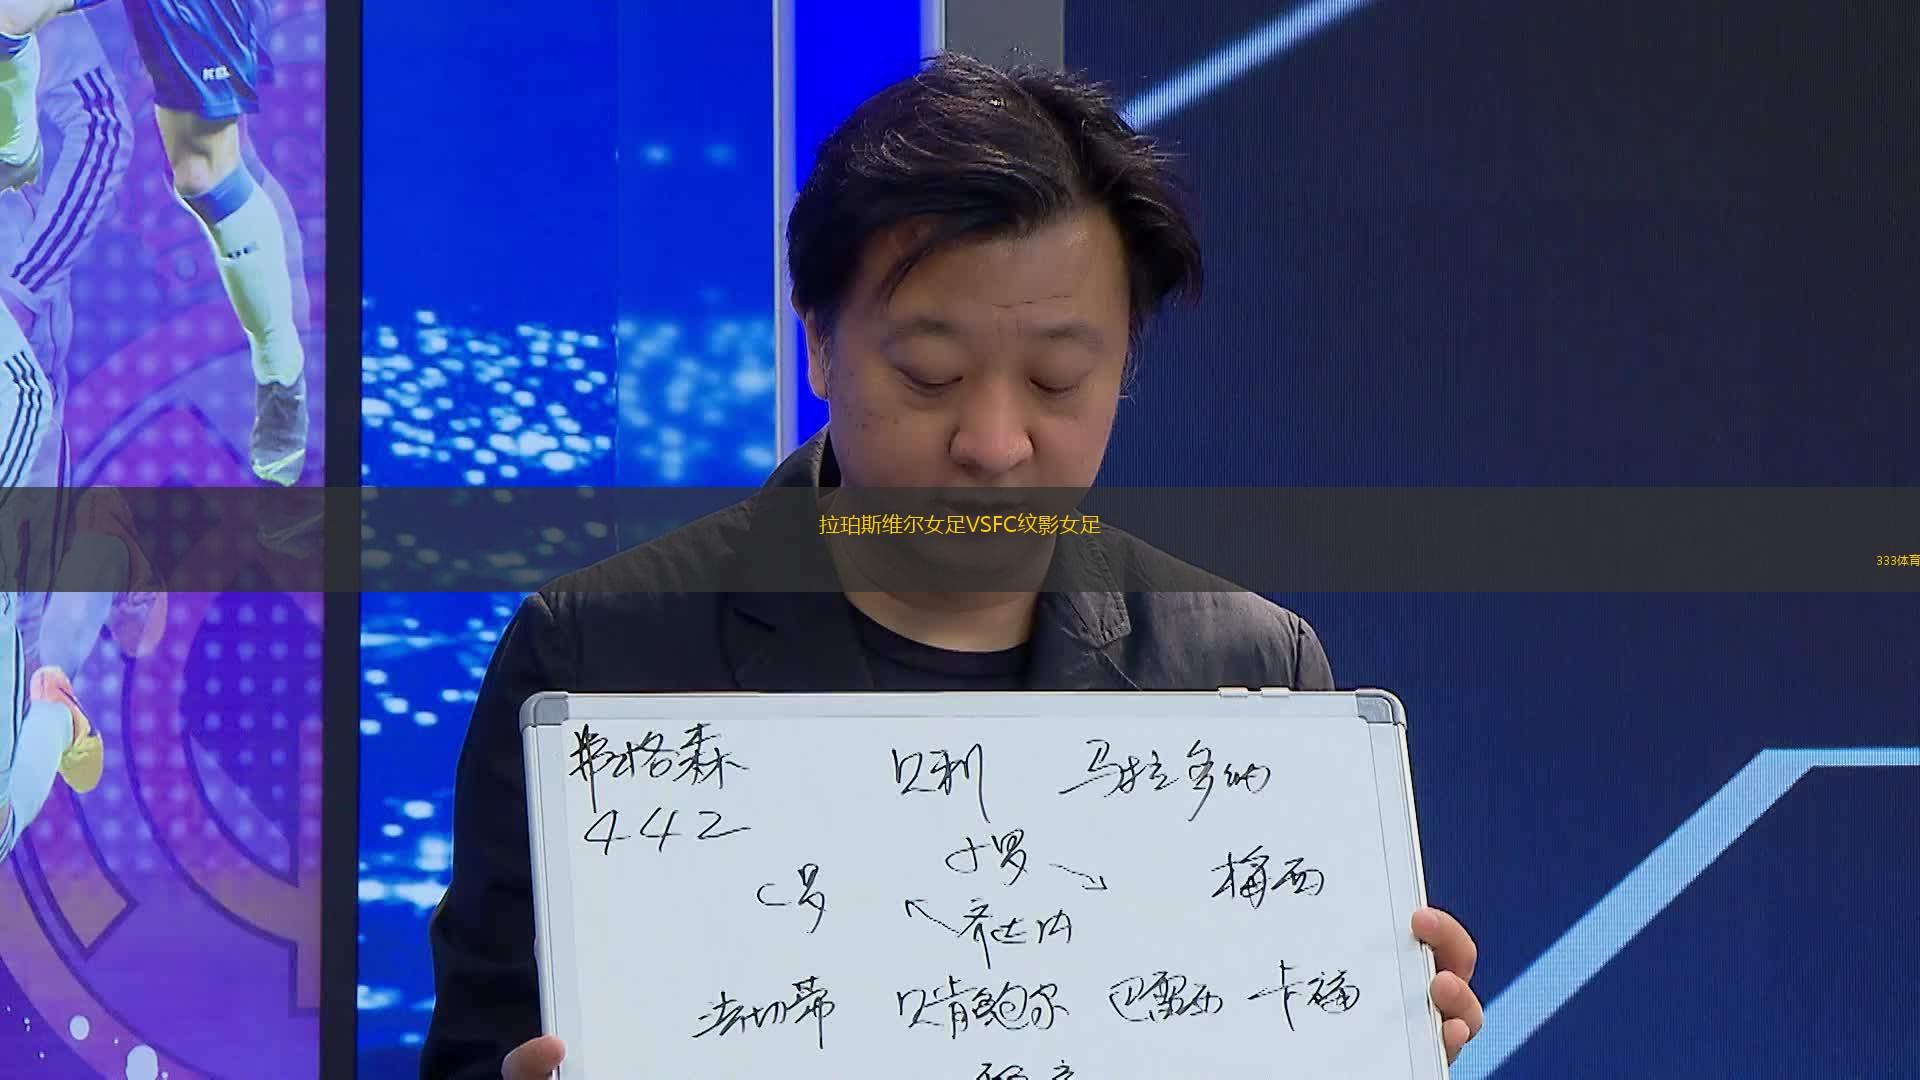 拉珀斯维尔女足VSFC纹影女足
333体育
弗格森 贝利 马拉多纳
442
小罗
C罗 梅西
齐达内
法切蒂 贝肯鲍尔 巴雷西 卡福